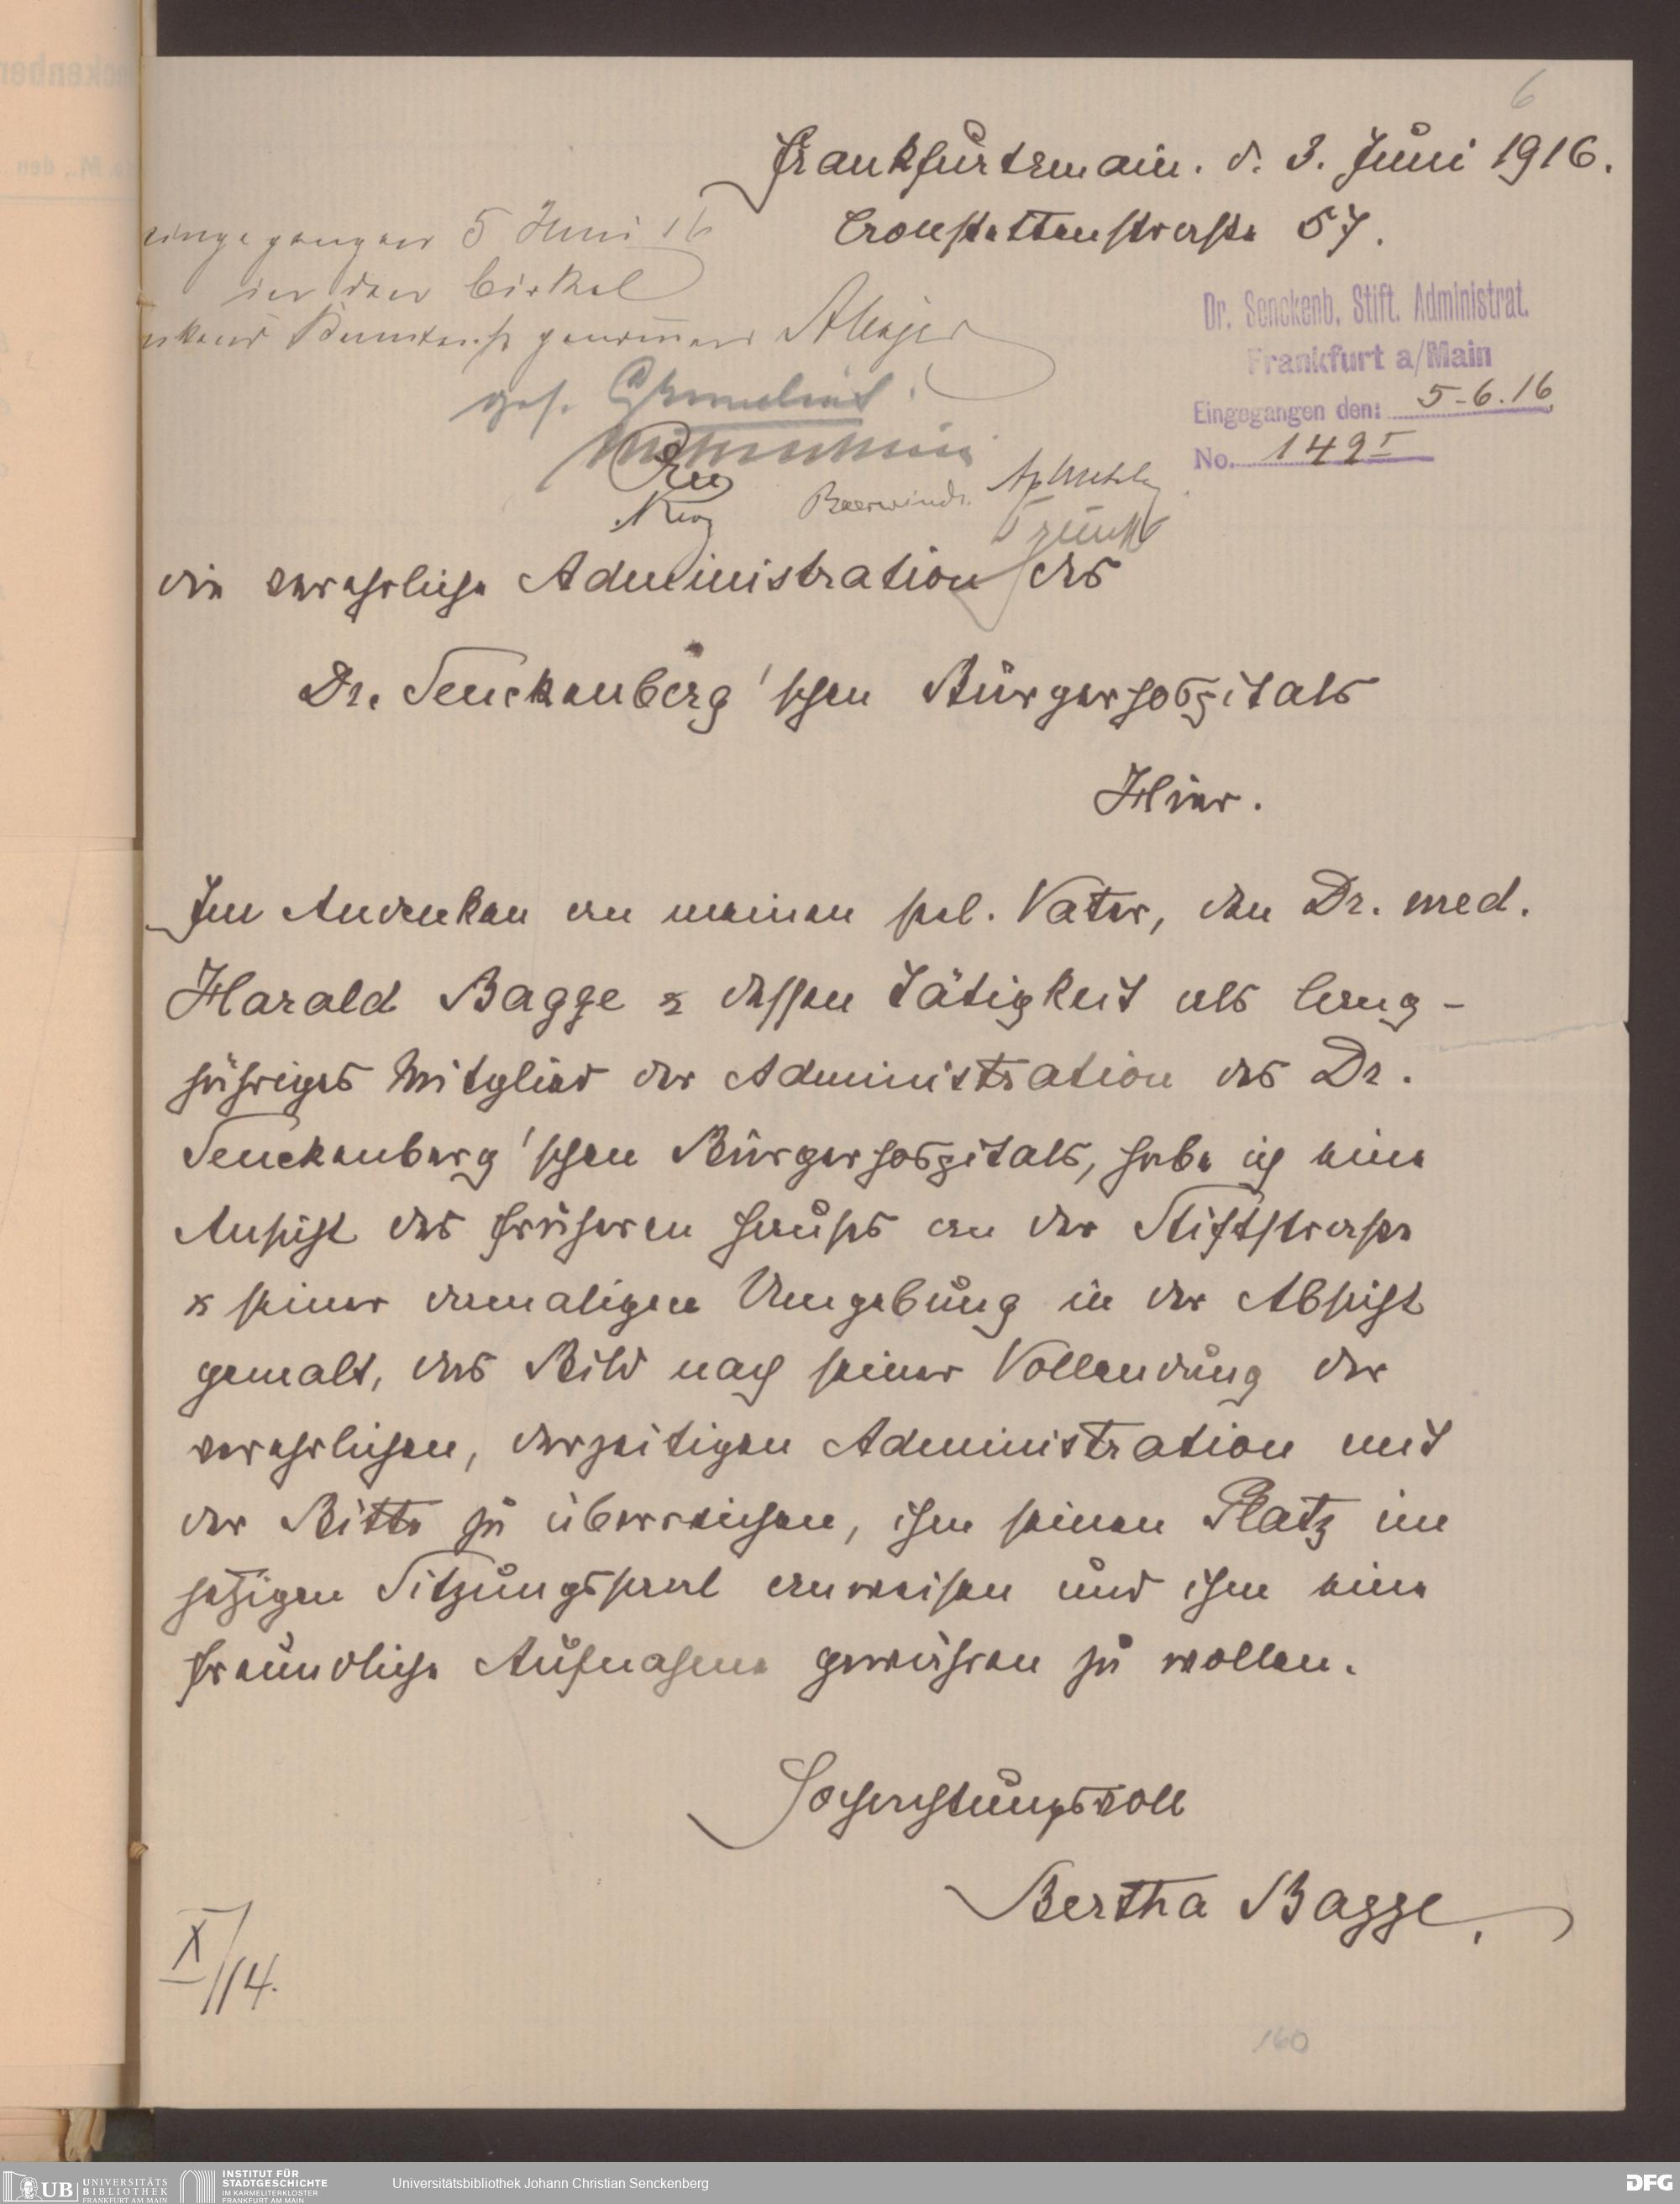 6
Frankfurtzmain. d. 3. Juni 1916.
Cronstettenstrasse 57.
eingegangen 5 Juni 16
in den Cirkel
Kenntniss genommen A Meyer
ges.
Beerwind.
Dr. Senckenb. Stift. Administrat.
Frankfurt a/Main
Eingegangen den: 5-6.16
No. 149 I
die verehrliche Administration des
Dr. Senckenberg'schen Bürgerhospitals
Hier.
Im Andenken an meinen sel. Vater, den Dr. med.
Harald Bagge & dessen Tätigkeit als lang-
jähriges Mitglied der Administration des Dr.
Senckenberg'schen Bürgerhospitals, habe ich eine
Ansicht des früheren Hauses an der Stiftstrasse
& seiner damaligen Umgebung in der Absicht
gemalt, das Bild nach seiner Vollendung der
verehrlichen, derzeitigen Administration mit
der Bitte zu überreichen, ihm seinen Platz im
jetzigen Sitzungssaal anweisen und ihm eine
freundliche Aufnahme gewähren zu wollen.
Hochachtungsvoll
Bertha Bagge.
X/114.
160
UB UNIVERSITÄTS
BIBLIOTHEK
FRANKFURT AM MAIN
INSTITUT FÜR
STADTGESCHICHTE
IM KARMELITERKLOSTER
FRANKFURT AM MAIN
Universitätsbibliothek Johann Christian Senckenberg
DFG